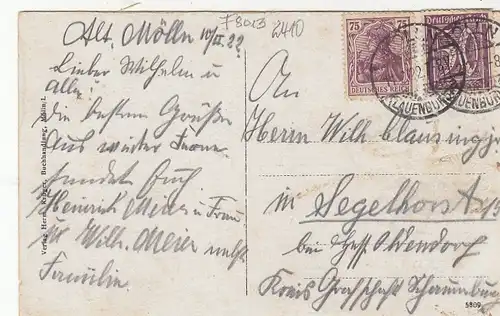 F8013
2410
Alt. Mölln 10/II. 22
Lieber Wilhelm u
Alle!
die besten Grüße
Aus
sendet Euch
Heinrich Meier u Frau
u Wilh. Meier nebst
Familie
An
Herrn Wilh Clausing
in Segelhorst
bei Hess Oldendorf
Kreis Grafschaft Schaumburg
75 75
DEUTSCHES REICH
Deutsches Reich
LAUENBURG
Verlag Herm. Krüger, Buchhandlung, Mölln i. L.
5809